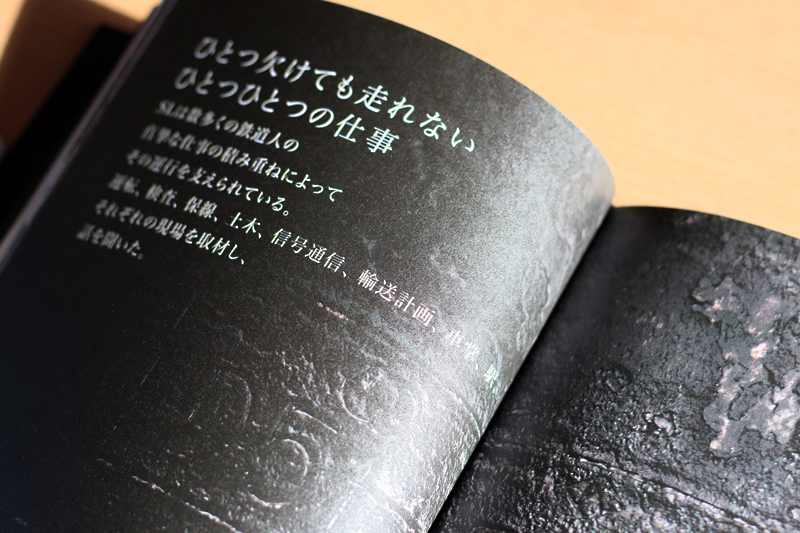 ひとつ欠けても走れない
ひとつひとつの仕事
SLは数多くの鉄道人の
真摯な仕事の積み重ねによって
その運行を支えられている。
運転、検査、保線、土木、信号通信、輸送計画、車掌、駅、
それぞれの現場を取材し、
話を聞いた。